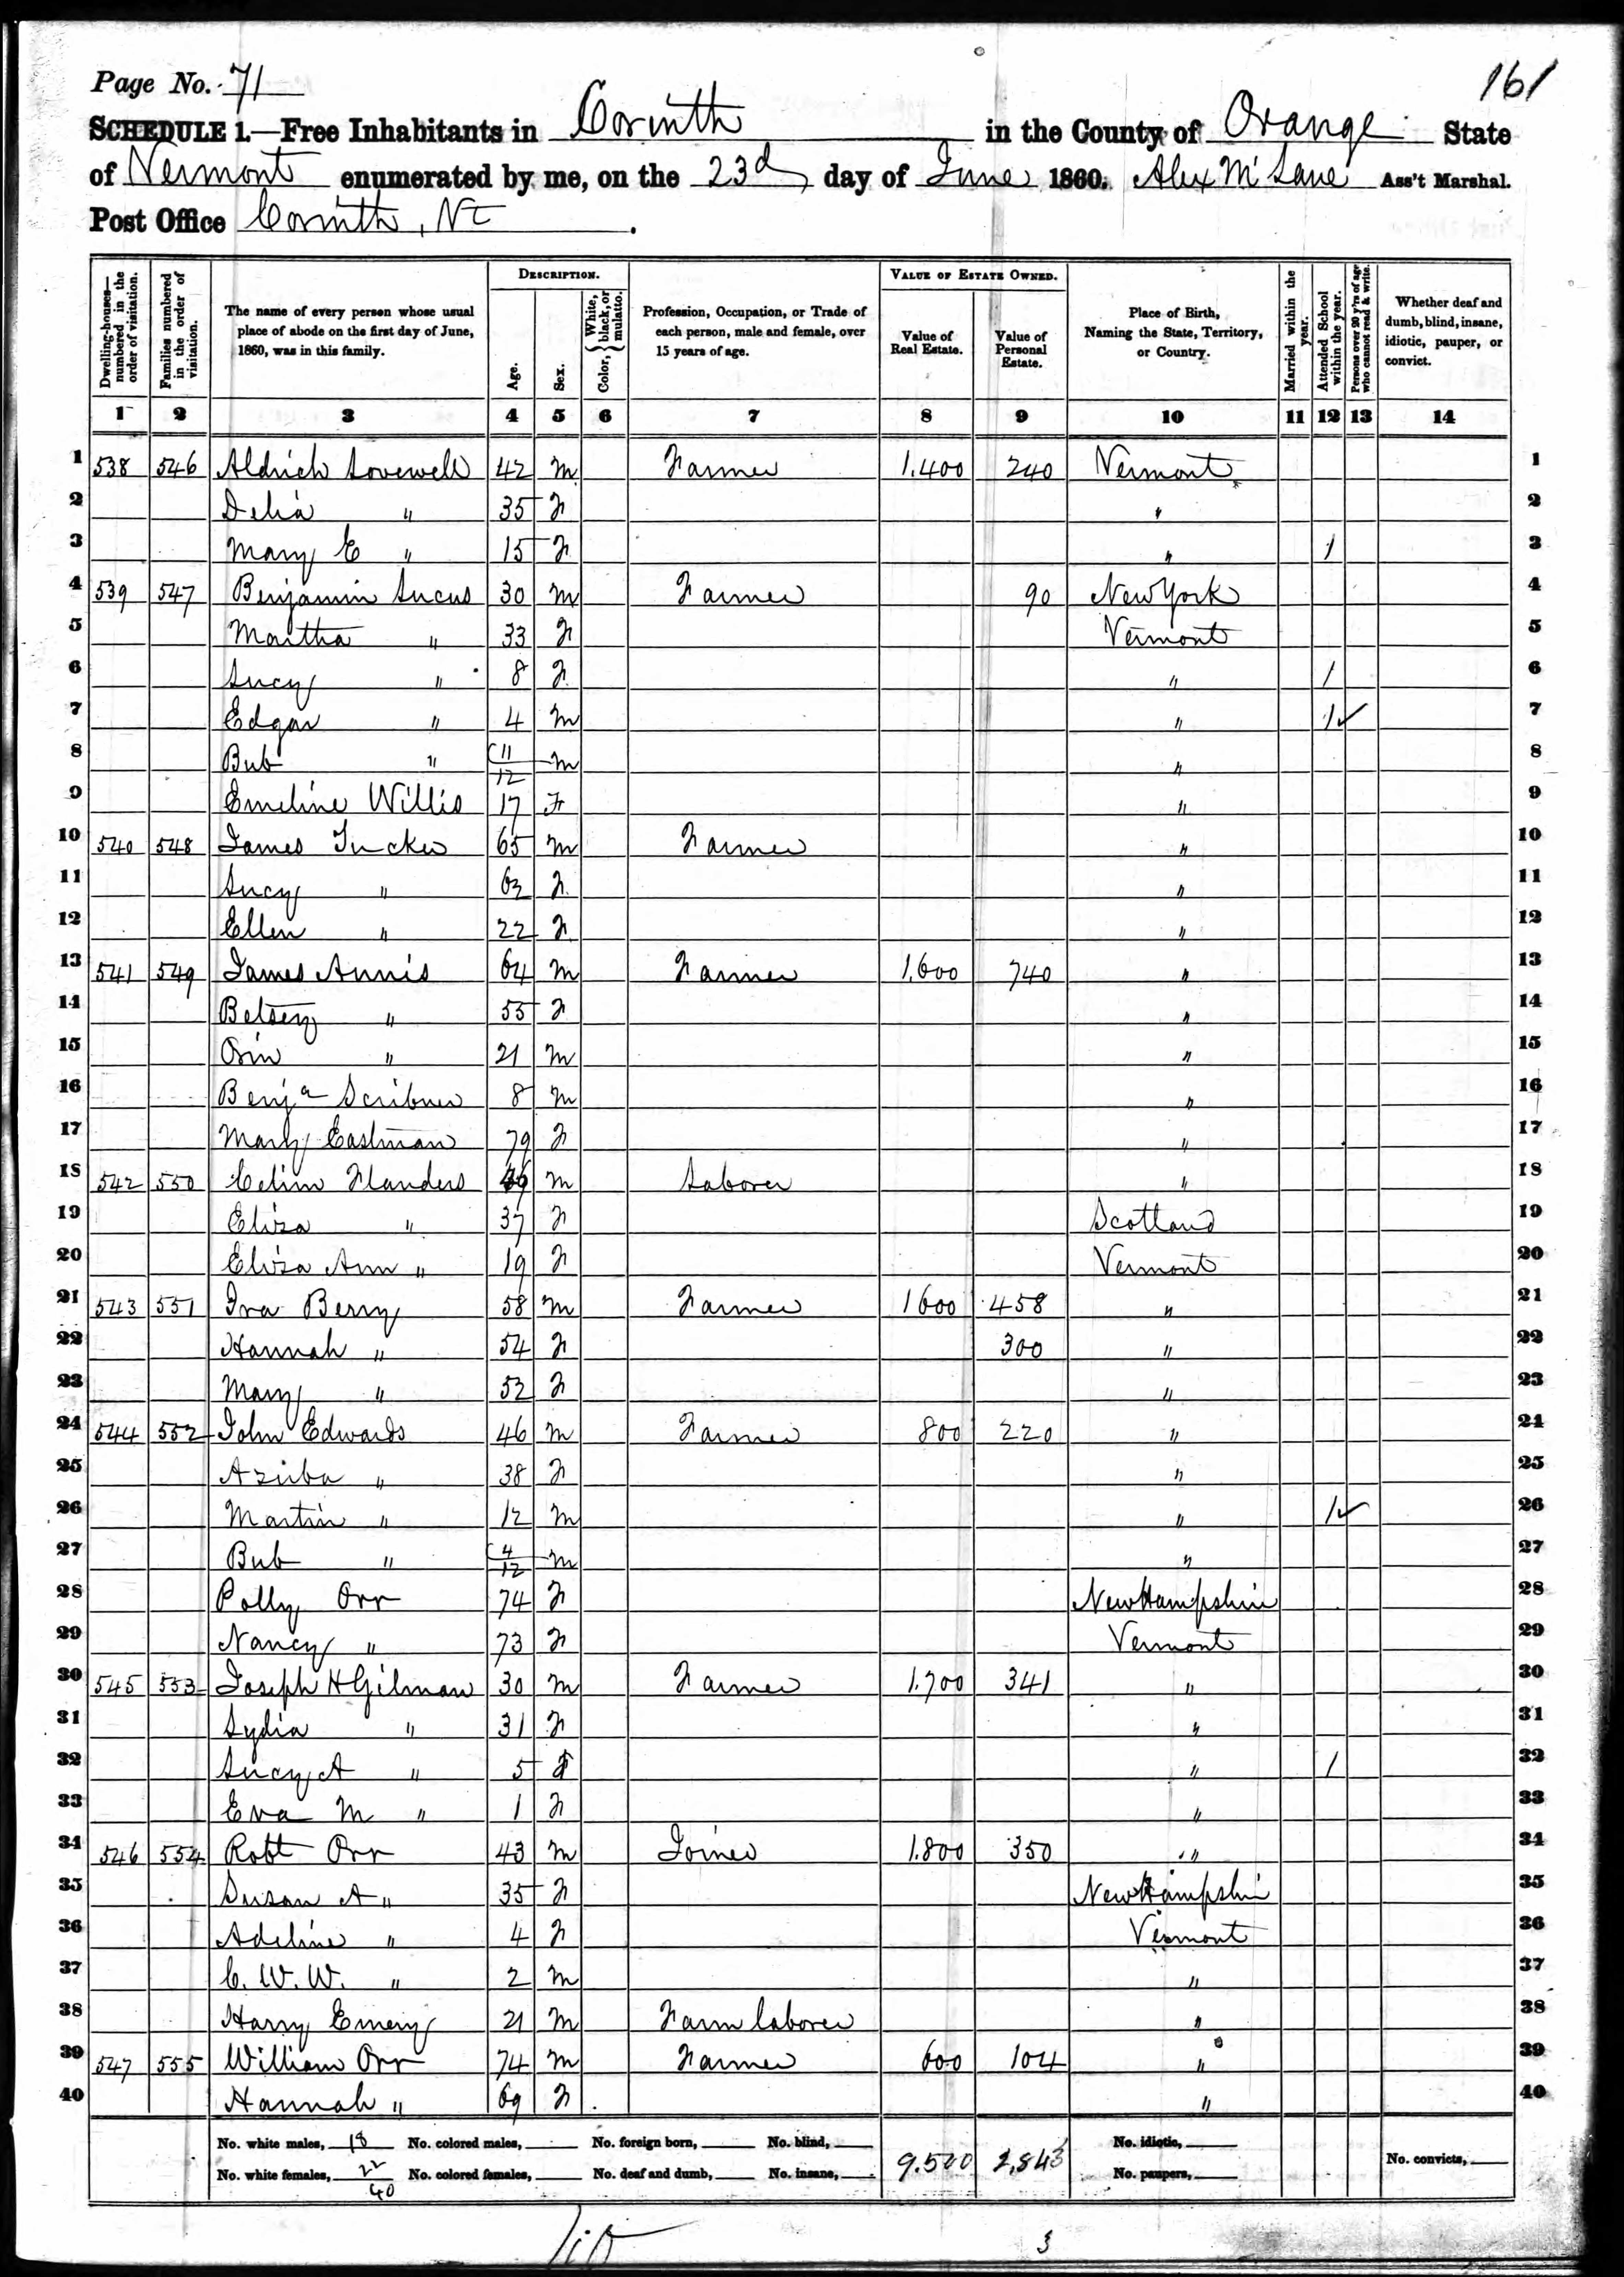 Page No. 71
161
SCHEDULE 1.—Free Inhabitants in Corinth in the County of Orange State
of Vermont enumerated by me, on the 23d day of June 1860. Alex McLane Ass't Marshal.
Post Office Corinth, Vt.
DESCRIPTION. VALUE OF ESTATE OWNED.
Dwelling-houses—numbered in the order of visitation.
Families numbered in the order of visitation.
The name of every person whose usual place of abode on the first day of June, 1860, was in this family.
Age.
Sex.
Color, { White, black, or mulatto.
Profession, Occupation, or Trade of each person, male and female, over 15 years of age.
Value of Real Estate.
Value of Personal Estate.
Place of Birth, Naming the State, Territory, or Country.
Married within the year.
Attended School within the year.
Persons over 20 y'rs of age who cannot read & write.
Whether deaf and dumb, blind, insane, idiotic, pauper, or convict.
1 2 3 4 5 6 7 8 9 10 11 12 13 14
1 538 546 Aldrich Lovewell 42 m Farmer 1.400 240 Vermont 1
2 Delia " 35 F " 2
3 Mary E " 15 F " 1 3
4 539 547 Benjamin Lucus 30 m Farmer 90 New York 4
5 Martha " 33 F Vermont 5
6 Lucy " 8 F " 1 6
7 Edgar " 4 m " 1✓ 7
8 Bub " 11/12 m " 8
9 Emeline Willis 17 F " 9
10 540 548 James Tucker 65 m Farmer " 10
11 Lucy " 62 F " 11
12 Ellen " 22 F " 12
13 541 549 James Annis 64 m Farmer 1.600 740 " 13
14 Betsey " 55 F " 14
15 Orin " 21 m " 15
16 Benja Scribner 8 m " 16
17 Mary Eastman 79 F " 17
18 542 550 Flanders m Laborer " 18
19 Eliza " 37 F Scotland 19
20 Eliza Ann " 19 F Vermont 20
21 543 551 Ira Berry 58 m Farmer 1600 458 " 21
22 Hannah " 54 F 300 " 22
23 Mary " 52 F " 23
24 544 552 John Edwards 46 m Farmer 800 220 " 24
25 Aziuba " 38 F " 25
26 Martin " 12 m " 1✓ 26
27 Bub " 4/12 m " 27
28 Polly Orr 74 F New Hampshire 28
29 Nancy " 73 F Vermont 29
30 545 553 Joseph H Gilman 30 m Farmer 1.700 341 " 30
31 Lydia " 31 F " 31
32 Lucy A " 5 F " 1 32
33 Eva M " 1 F " 33
34 546 554 Robt Orr 43 m Joiner 1.800 350 " 34
35 Susan A " 35 F New Hampshi 35
36 Adeline " 4 F Vermont 36
37 C. W. W. " 2 m " 37
38 Harry Emery 21 m Farm laborer " 38
39 547 555 William Orr 74 m Farmer 600 104 " 39
40 Hannah " 69 F " 40
No. white males, 18 No. colored males, No. foreign born, No. blind, 9.500 2,843 No. idiotic, No. convicts,
No. white females, 22 No. colored females, No. deaf and dumb, No. insane, No. paupers,
40
3